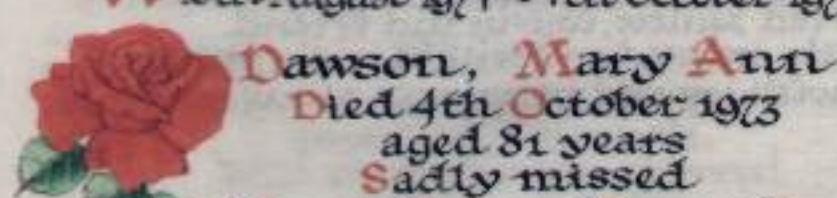 Dawson, Mary Ann
Died 4th October 1973
aged 81 years
Sadly missed